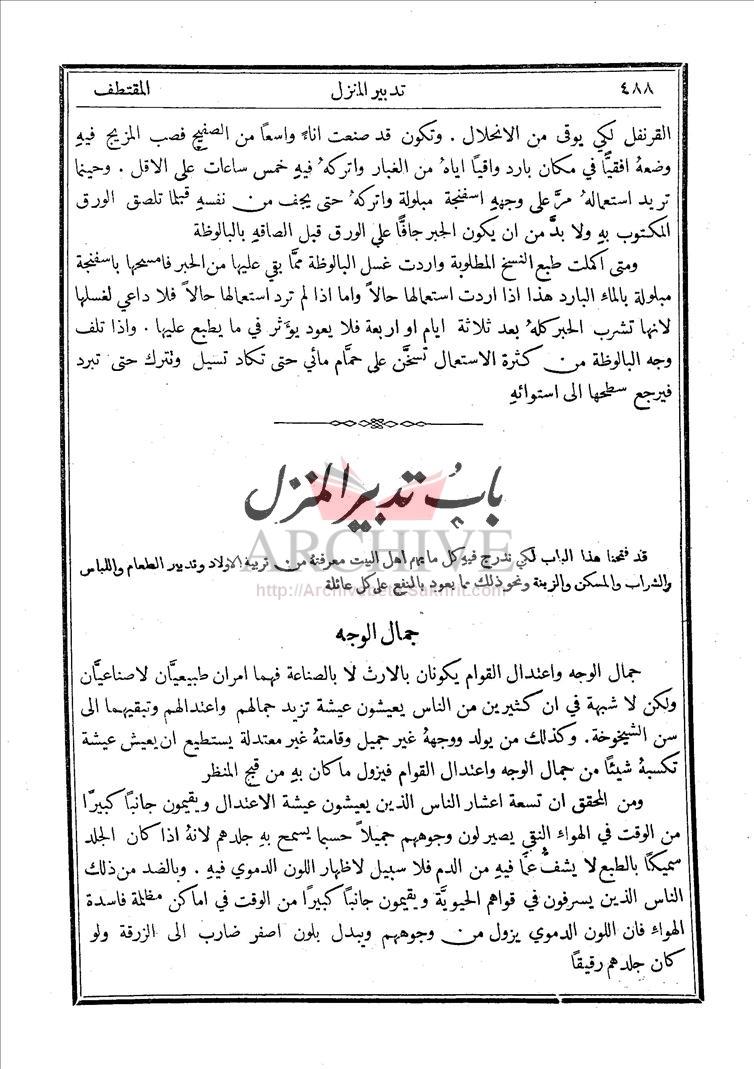 ٤٨٨ تدبير المنزل المقتطف
القرنفل لكي يوقى من الانحلال . وتكون قد صنعت اناءً واسعاً من الصفيح فصب المزيج فيهِ
وضعهُ افقيًّا في مكان بارد واقيًا اياهُ من الغبار واتركهُ فيهِ خمس ساعات على الاقل . وحينما
تريد استعمالهُ مرَّ على وجههِ اسفنجة مبلولة واتركهُ حتى يجف من نفسهِ قبلما تلصق الورق
المكتوب بهِ ولا بدَّ من ان يكون الحبر جافًّا على الورق قبل الصاقهِ بالبالوظة
ومتى اكملت طبع النسخ المطلوبة واردت غسل البالوظة ممَّا بقي عليها من الحبر فامسحها باسفنجة
مبلولة بالماء البارد هذا اذا اردت استعمالها حالاً واما اذا لم ترد استعمالها حالاً فلا داعي لغسلها
لانها تشرب الحبر كلهُ بعد ثلاثة ايام او اربعة فلا يعود يؤَثر في ما يطبع عليها . واذا تلف
وجه البالوظة من كثرة الاستعمال تسخَّن على حمَّام مائي حتى تكاد تسيل وتترك حتى تبرد
فيرجع سطحها الى استوائهِ
بابُ تدبير المنزل
ARCHIVE
قد فتحنا هذا الباب لكي ندرج فيهِ كل ما يهم اهل البيت معرفتهُ من تربية الاولاد وتدبير الطعام واللباس
والشراب والمسكن والزينة ونحو ذلك مما يعود بالنفع على كل عائلة
http://Archivebeta.Sakhrit.com
جمال الوجه
جمال الوجه واعتدال القوام يكونان بالارث لا بالصناعة فهما امران طبيعيَّان لا صناعيَّان
ولكن لا شبهة في ان كثيرين من الناس يعيشون عيشة تزيد جمالهم واعتدالهم وتبقيهما الى
سن الشيخوخة . وكذلك من يولد ووجههُ غير جميل وقامتهُ غير معتدلة يستطيع ان يعيش عيشة
تكسبهُ شيئًا من جمال الوجه واعتدال القوام فيزول ما كان بهِ من قبح المنظر
ومن المحقق ان تسعة اعشار الناس الذين يعيشون عيشة الاعتدال ويقيمون جانبًا كبيرًا
من الوقت في الهواء النقي يصير لون وجوههم جميلاً حسبما يسمح بهِ جلدهم لانهُ اذا كان الجلد
سميكًا بالطبع لا يشفُّ عمَّا فيهِ من الدم فلا سبيل لاظهار اللون الدموي فيهِ . وبالضد من ذلك
الناس الذين يسرفون في قواهم الحيويَّة ويقيمون جانبًا كبيرًا من الوقت في اماكن مظلمة فاسدة
الهواء فان اللون الدموي يزول من وجوههم ويبدل بلون اصفر ضارب الى الزرقة ولو
كان جلدهم رقيقًا